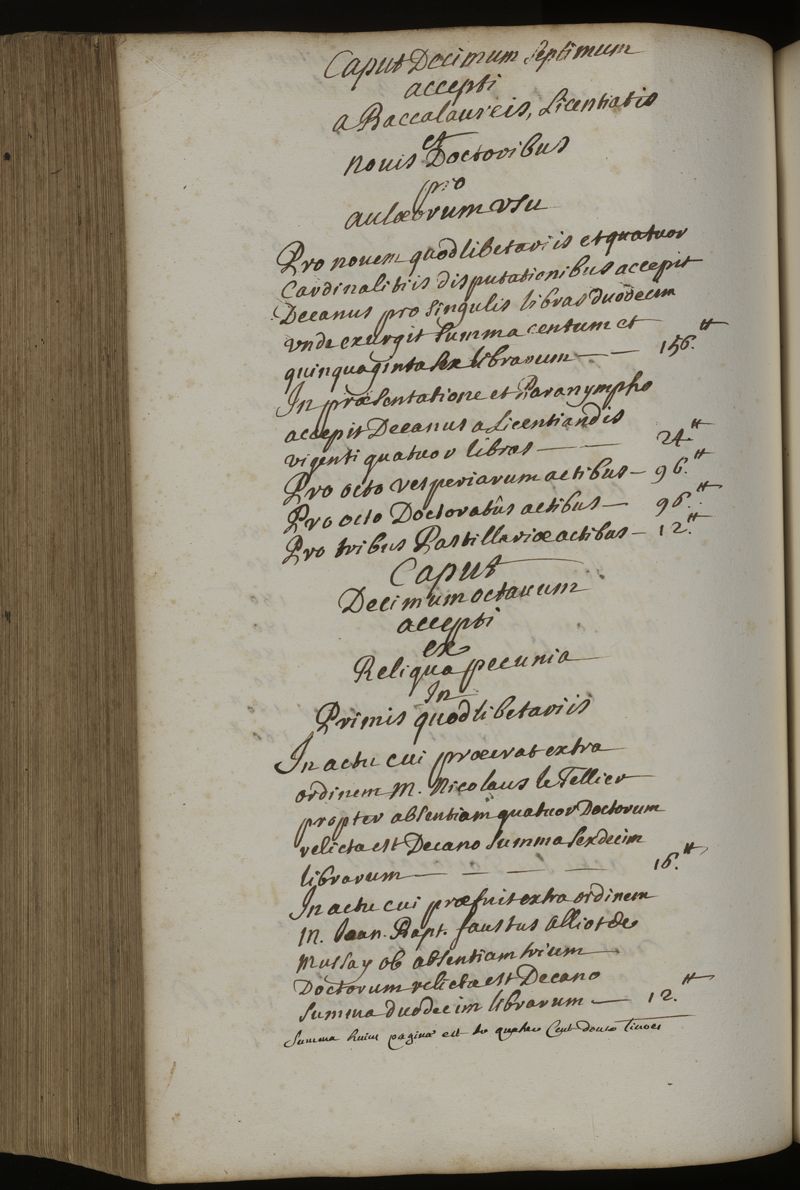 Caput Decimum septimum
accepti
a Baccalaureis, Licentiatis
et
novis Doctoribus
pro
aulæorum usu
Pro novem quodlibetariis et quatuor
Cardinalitiis disputationibus accepit
Decanus pro singulis libras duodecim
unde exurgit summa centum et
quinquaginta sex librarum — — 156.tt
In præsentatione et Paranympho
accepit Decanus a Licentiandis
viginti quatuor libras — — 24.tt
Pro octo vesperiarum actibus — 96.tt
Pro octo Doctoratûs actibus — 96.tt
Pro tribus Pastillariæ actibus — 12.tt
Caput
Decimum octavum
accepti
ex
Reliqua pecunia
In
Primis quodlibetariis
In actu cui præerat extra
ordinem M. Nicolaus le Tellier
propter absentiam quatuor Doctorum
relicta est Decano summa sexdecim
librarum — — — — — 16.tt
In actu cui præfuit extra ordinem
M. Joan. Bapt. faustus alliot de
Mussay ob absentiam trium
Doctorum relicta est Decano
summa duodecim librarum — 12.tt
Summa huius paginæ est quatre Cent douze livres